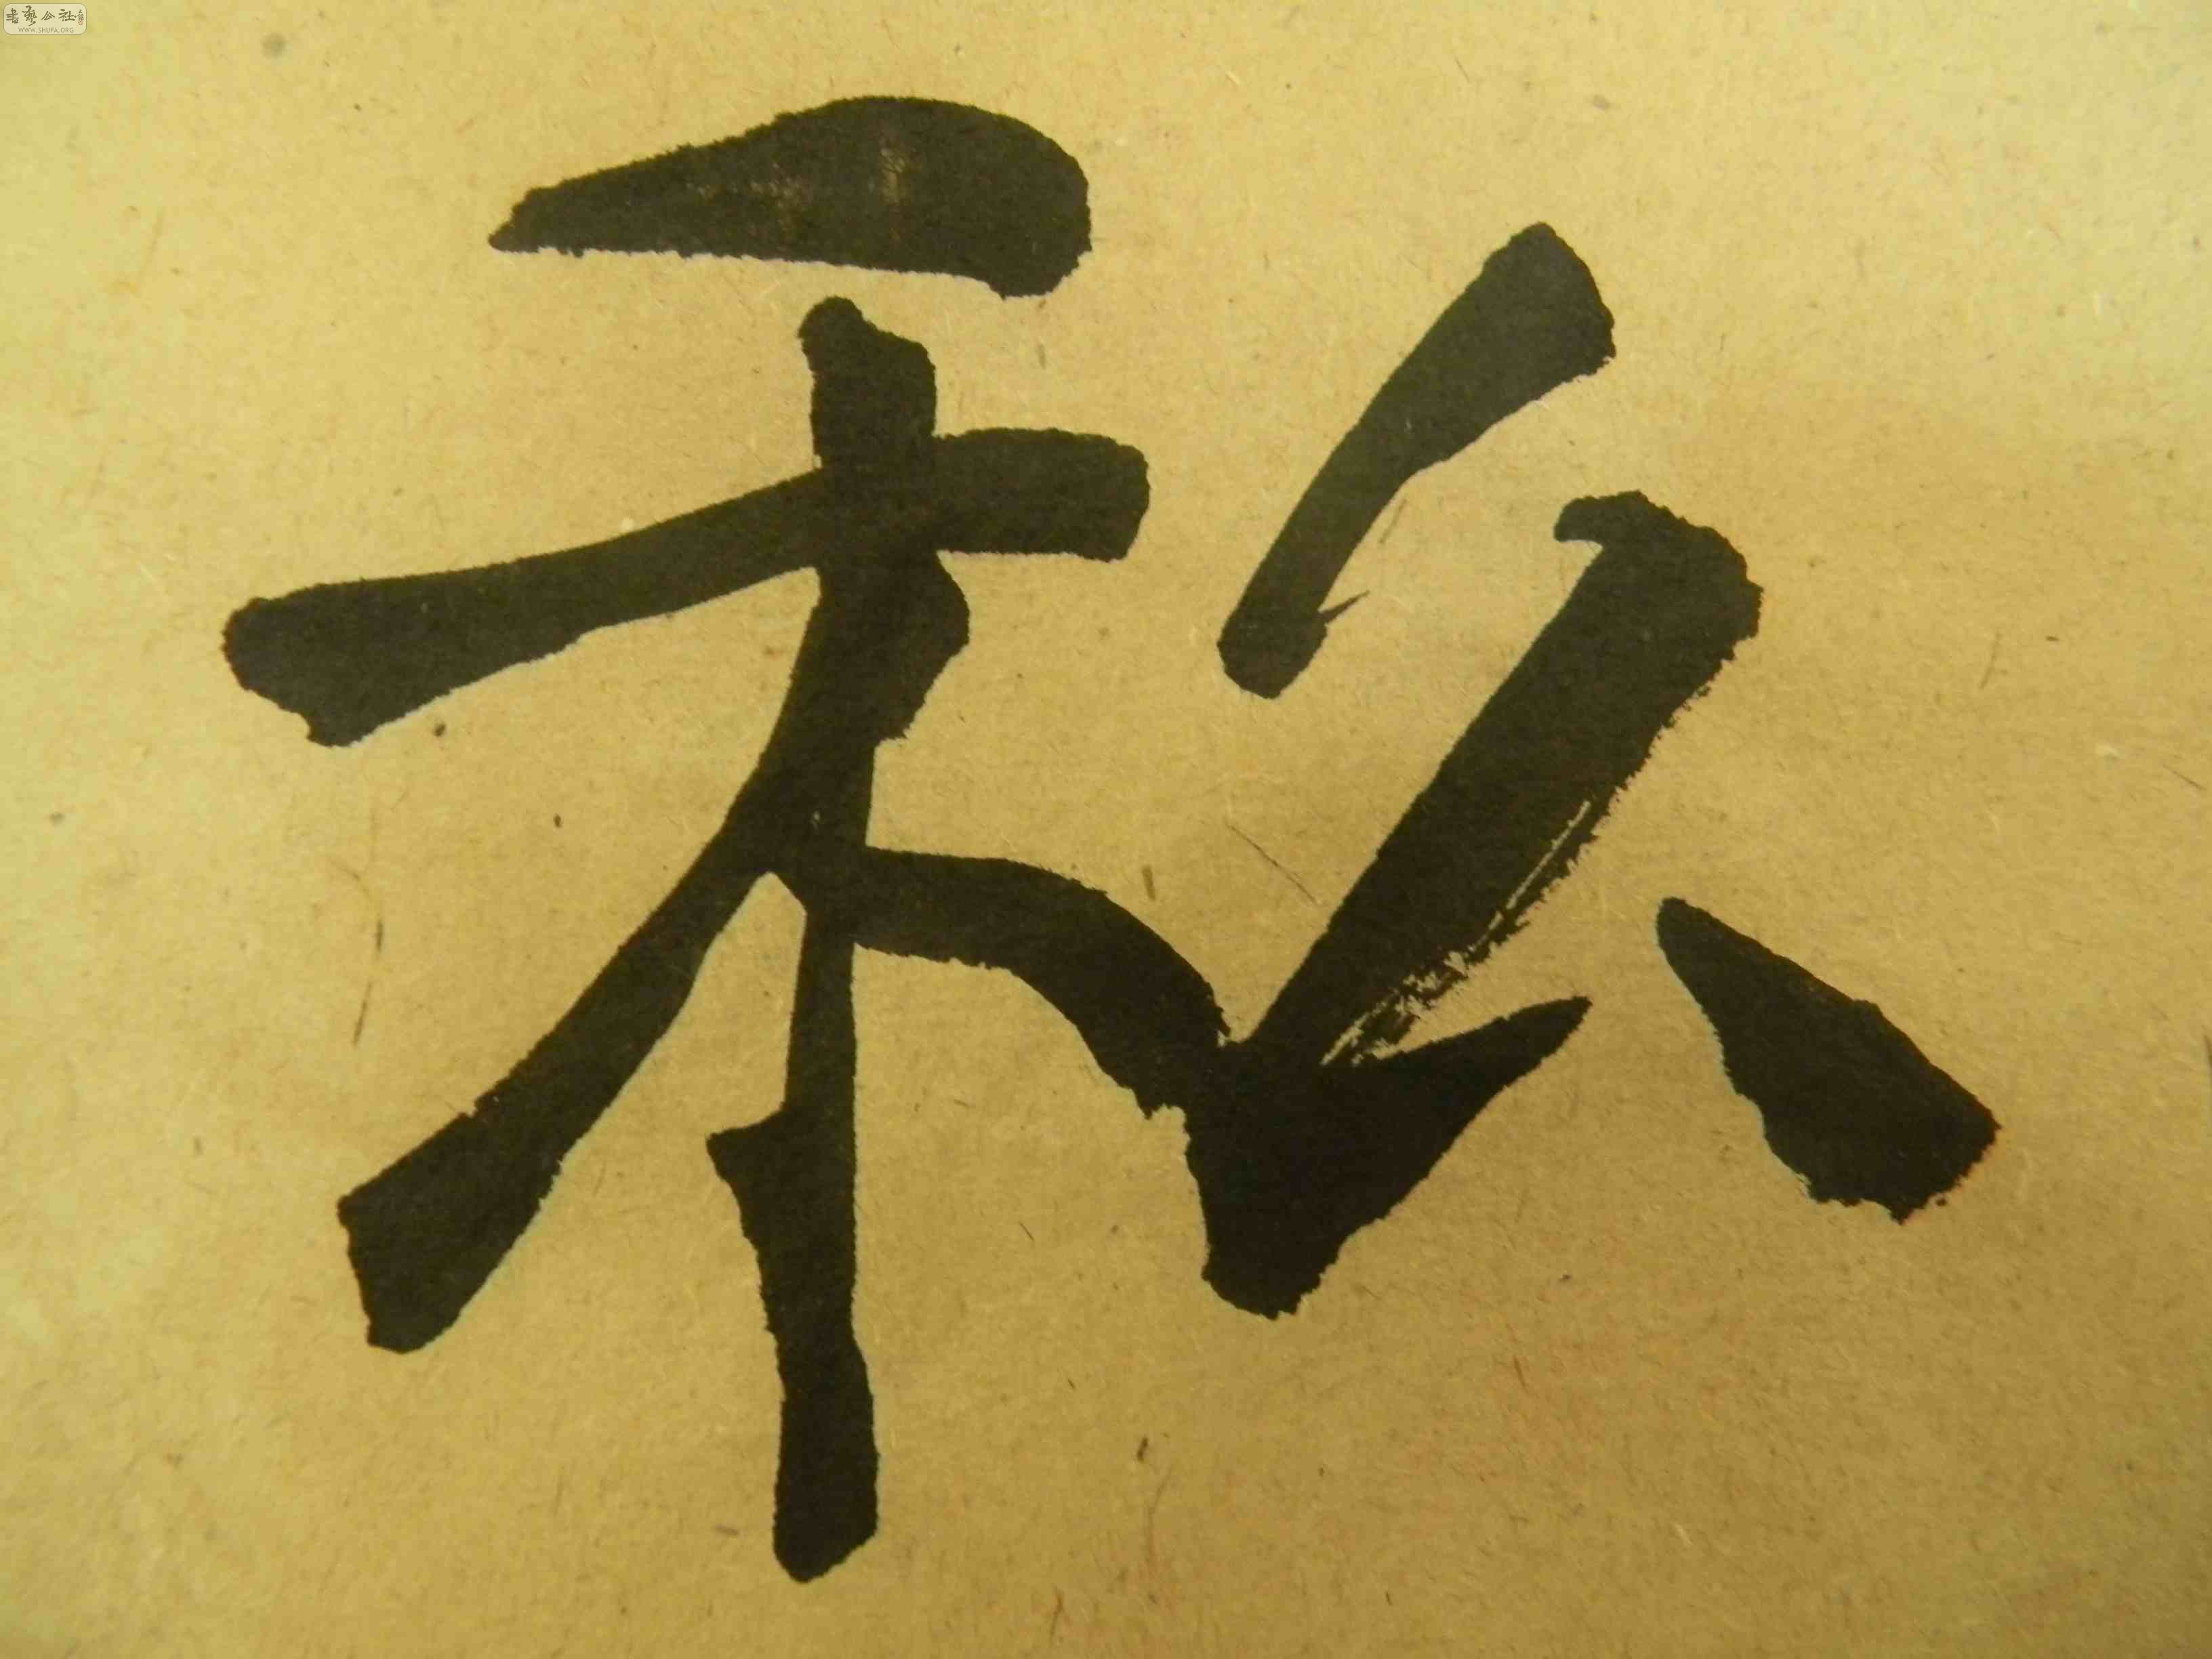 書藝公社
WWW.SHUFA.ORG
私